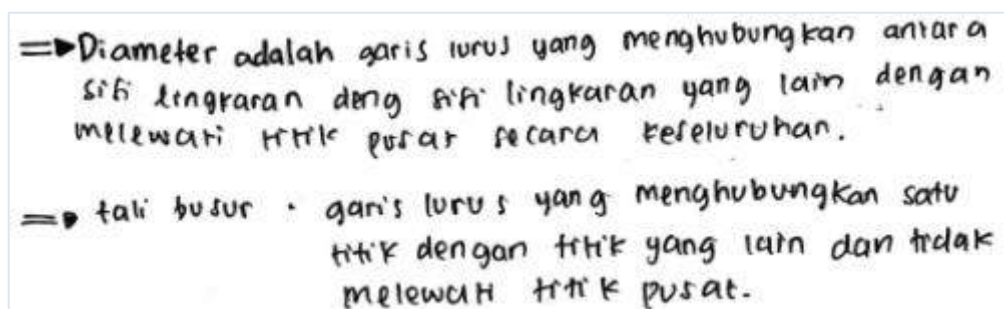 ⇒ Diameter adalah garis lurus yang menghubungkan antara
sisi lingkaran deng sisi lingkaran yang lain dengan
melewati titik pusat secara keseluruhan.
⇒ tali busur : garis lurus yang menghubungkan satu
titik dengan titik yang lain dan tidak
melewati titik pusat.